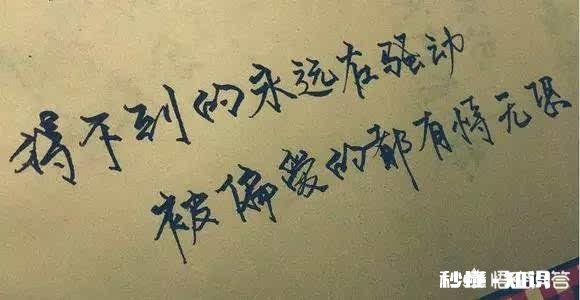 得不到的永远在骚动
被偏爱的都有恃无恐
秒懂·知识
悟 答